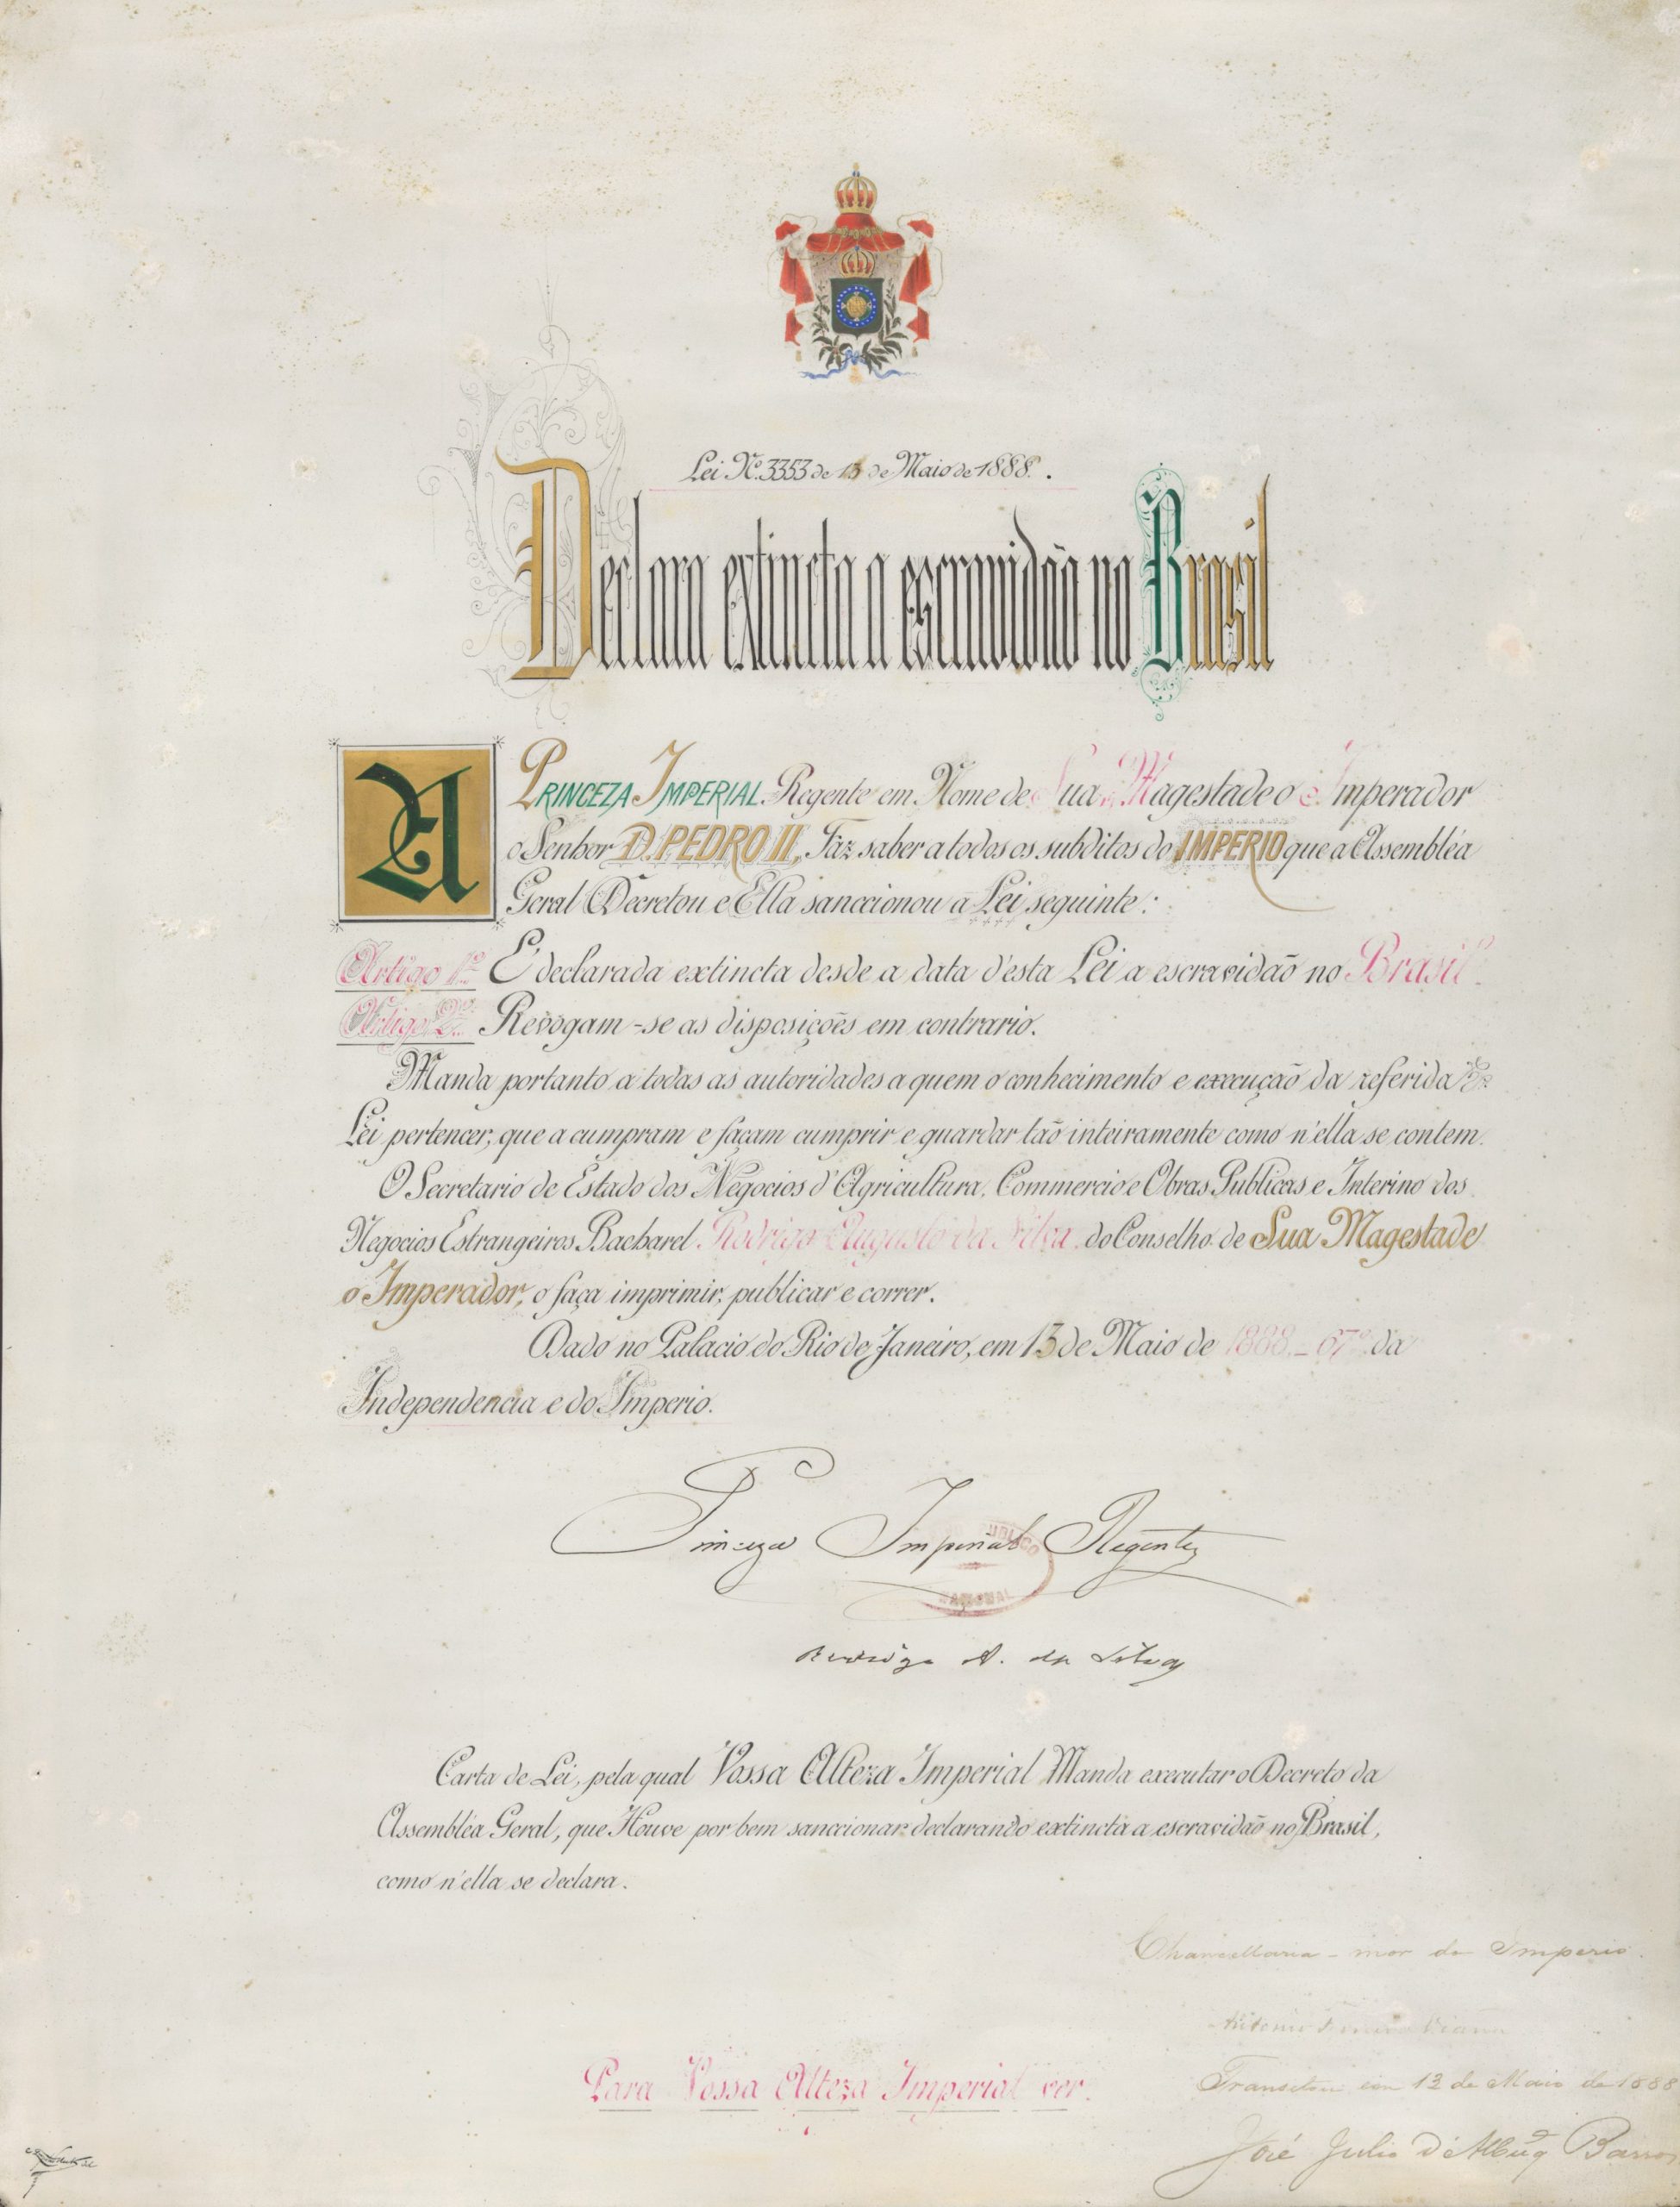 Lei Nº. 3353 de 13 de Maio de 1888.
Declara extincta a escravidão no Brasil
A PRINCEZA IMPERIAL Regente em Nome de Sua Magestade o Imperador
o Senhor D. PEDRO II, Faz saber a todos os subditos do IMPERIO que a Assembléa
Geral Decretou e Ella sanccionou a Lei seguinte:
Artigo 1º É declarada extincta desde a data d'esta Lei a escravidão no Brasil.
Artigo 2º Revogam-se as disposições em contrario.
Manda portanto a todas as autoridades a quem o conhecimento e execução da referida
Lei pertencer, que a cumpram e façam cumprir e guardar tão inteiramente como n'ella se contem.
O Secretario de Estado dos Negocios d'Agricultura, Commercio e Obras Publicas e Interino dos
Negocios Estrangeiros Bacharel Rodrigo Augusto da Silva do Conselho de Sua Magestade
o Imperador, o faça imprimir, publicar e correr.
Dado no Palacio do Rio de Janeiro, em 13 de Maio de 1888 - 67º da
Independencia e do Imperio.
Princeza Imperial Regente
Rodrigo A. da Silva
Carta de Lei, pela qual Vossa Alteza Imperial Manda executar o Decreto da
Assembléa Geral, que Houve por bem sanccionar declarando extincta a escravidão no Brasil,
como n'ella se declara.
Chancellaria-mor do Imperio.
Antonio Ferreira Vianna
Para Vossa Alteza Imperial ver.
Transitou em 13 de Maio de 1888
José Julio d'Albuqº Barros